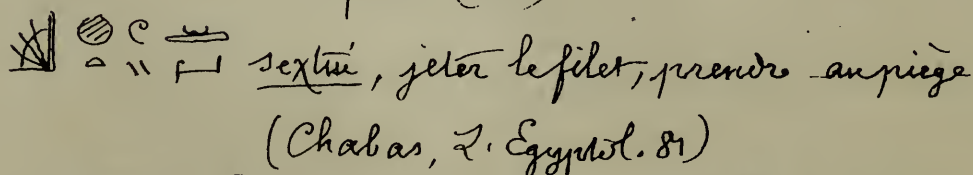 sextui, jeter le filet, prendre au piège
(Chabas, L. Égyptol. 81)